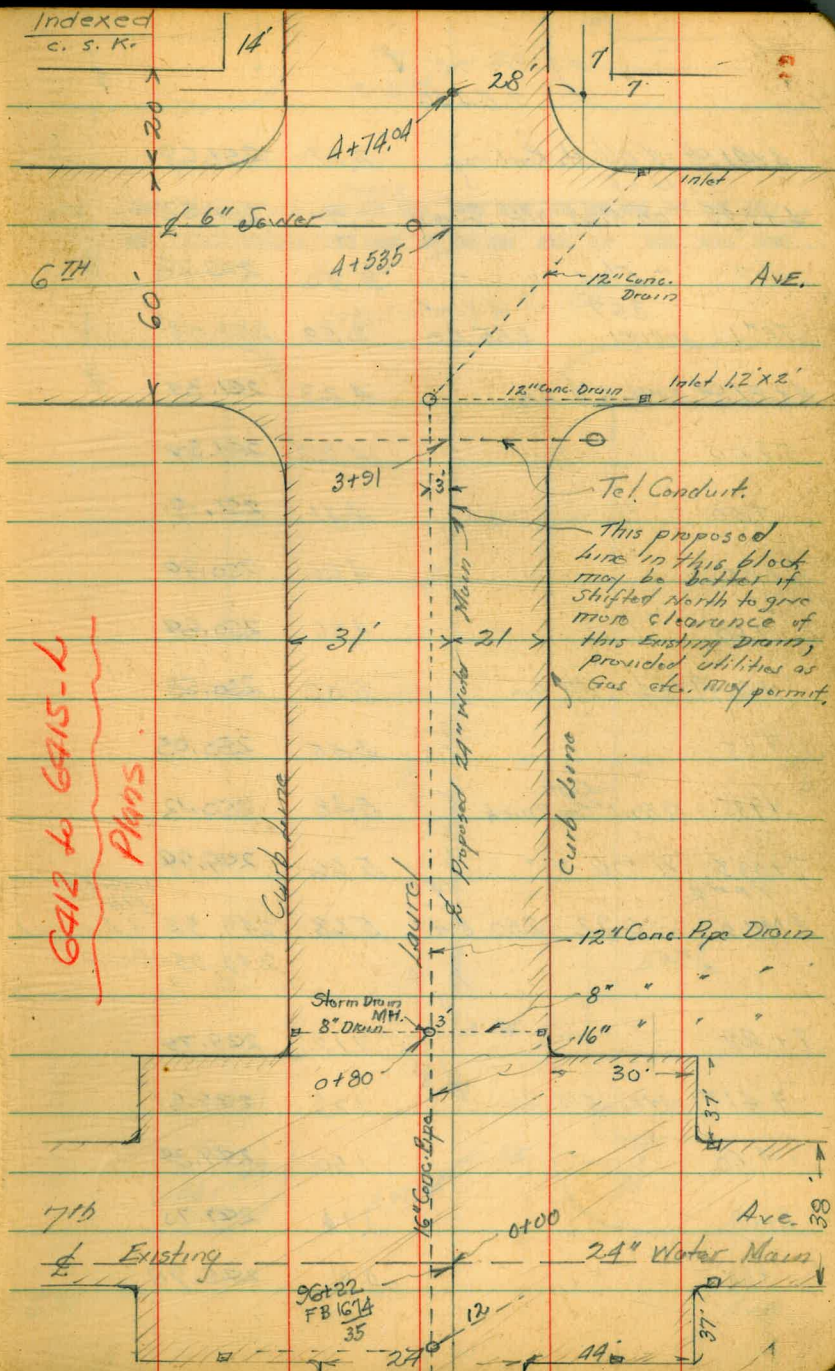 Indexed
C. S. K.
14'
28'
7
7
20
4+74.04
Inlet
℄ 6" Sewer
4+53.5
6TH
AVE.
12" Conc.
Drain
60'
12" Conc. Drain
Inlet 1.2' x 2'
3+91
3'
Tel. Conduit.
This proposed
Line in this block
may be better if
Shifted North to give
more clearance of
this Existing Drain,
provided utilities as
Gas etc. may permit.
31'
21
℄ Proposed 24" Water Main
6412 to 6415-L
Plans.
Curb Line
Curb Line
Laurel
12" Conc. Pipe Drain
Storm Drain
MH.
8" " " "
8" Drain
3'
16" " " "
0+80
30'
37'
16" Conc. Pipe
38'
7th
Ave.
0+00
℄ Existing
24" Water Main
96+22
FB 1674
35
12
37'
27
44'